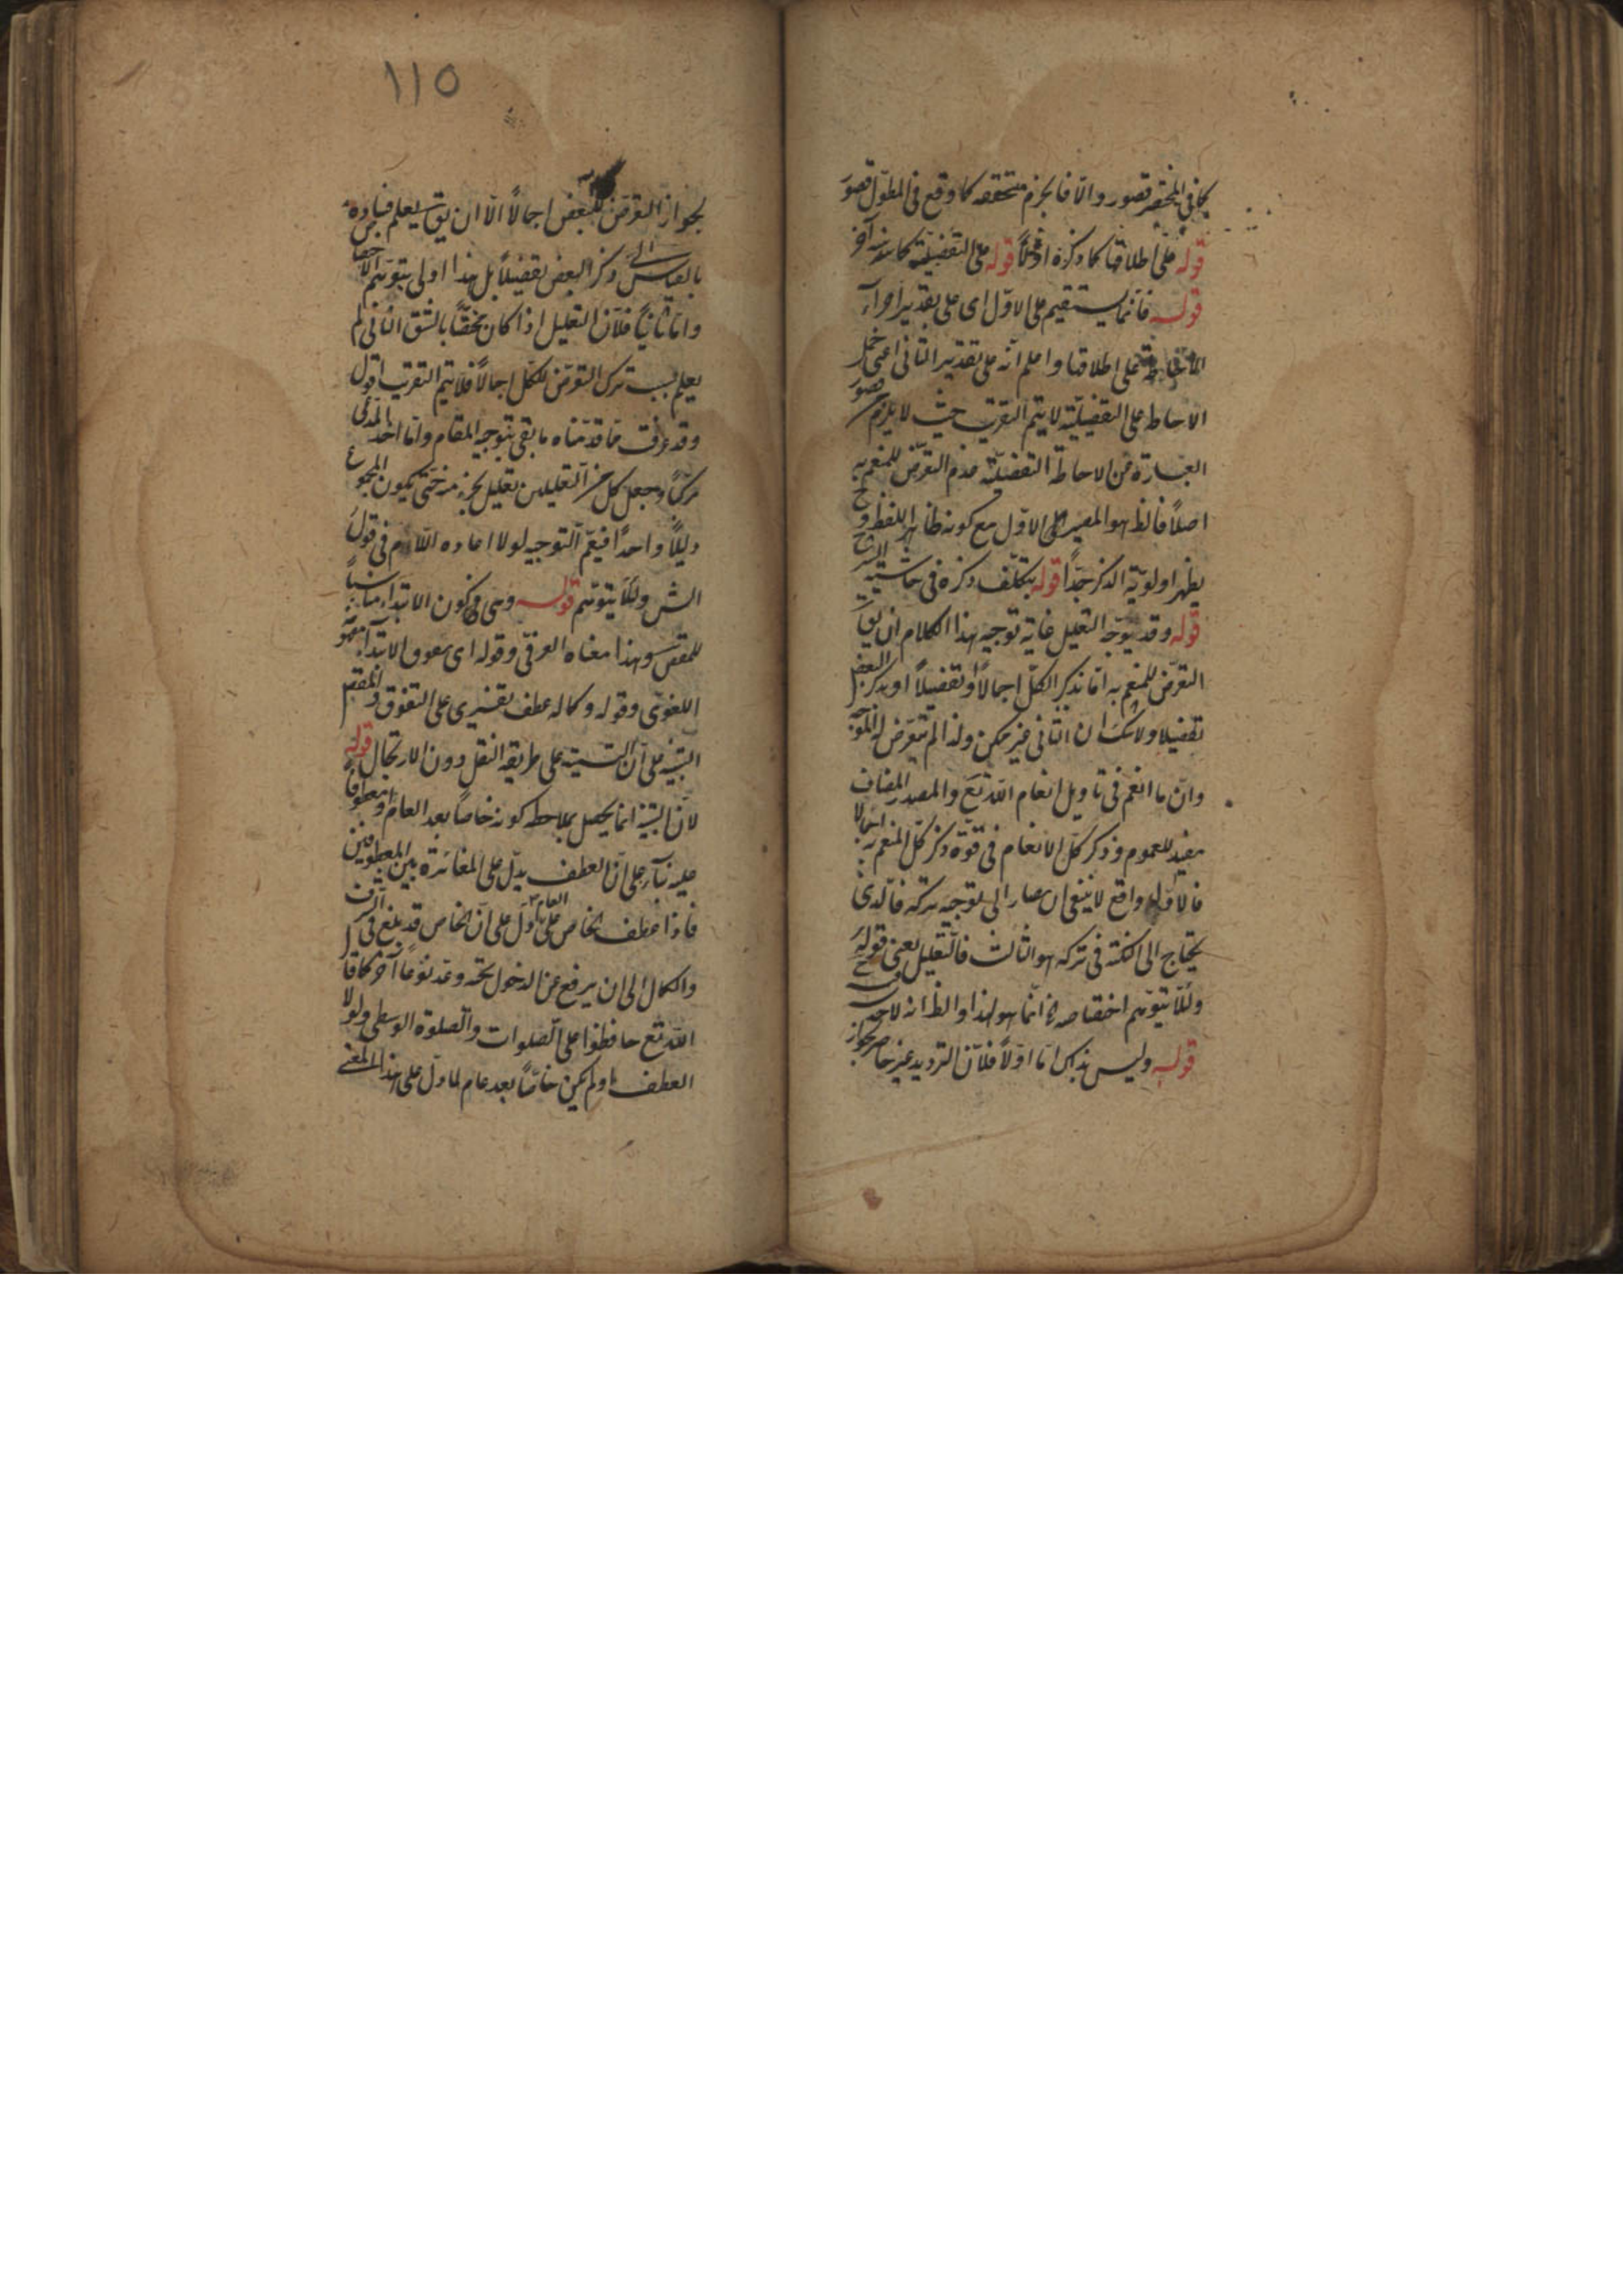 كما في المختصر قصور والا فالجزم متحقق كما وقع في المطول قصور
قوله على اطلاقها كما ذكره اولا قوله على التفصيلية كما سنذكر آخر
قوله فانما يستقيم على الاول اى على تقدير اجراء
الاحاطة على اطلاقها واعلم انه على تقدير الثانى اعنى حمل
الاحاطة على التفصيلية لا يتم التقريب حيث لا يلزم من قصور
العبارة عن الاحاطة التفصيلية عدم التعرض للمنعم به
اصلا فالظ هو المصير الى الاول مع كونه ظاهر اللفظ و ح
يظهر اولوية الذكر جدا قوله بتكلف ذكره فى حاشيته
قوله وقد يوجه التعليل غاية توجيه هذا الكلام ان يق
التعرض للمنعم به اما بذكر الكل اجمالا او تفصيلا او بذكر البعض
تفصيلا ولا شك ان الثانى غير ممكن ولذا لم يتعرض له الموجه
وان ما انعم فى تاويل انعام الله تع والمصدر المضاف
مفيد للعموم فذكر كل الانعام فى قوة ذكر كل المنعم به اجمالا
فالاول واقع لا ينبغى ان يصار الى توجيه تركه فالذى
يحتاج الى النكتة فى تركه هو الثالث فالتعليل يعنى قوله
ولئلا يتوهم اختصاصه انما هو لهذا والظ انه
قوله وليس بذاك اما اولا فلان الترديد غير حاصر لجواز
١١٥
لجواز التعرض للبعض اجمالا الا ان يق يعلم فساده
بالقياس الى ذكر البعض تفصيلا بل هذا اولى بتوهم الاختصاص
واما ثانيا فلان التعليل اذا كان مختصا بالشق الثانى لم
يعلم سبب ترك التعرض للكل اجمالا فلا يتم التقريب اقول
وقد عرفت مما قدمناه ما بقى بتوجيه المقام واما اخذ المدعى
مركبا وجعل كل من التعليلين تعليل لجزء منه حتى يكون المجموع
دليلا واحدا فنعم التوجيه لولا اعاده اللام فى قول
الش ولئلا يتوهم قوله وهى كون الابتداء مناسبا
للمقص وهذا معناه العرفى وقوله اى تفوق الابتداء
اللغوى وقوله وكماله عطف تفسيرى على التفوق و المقص
التنبيه على ان التسمية على طريقة النقل دون الارتجال قوله
لان التنبيه انما يحصل بملاحظة كونه خاصا بعد العام ومعطوفا
عليه بناء على ان العطف يدل على المغائرة بين المعطوفين
فاذا عطف الخاص على العام دل على ان الخاص قد بلغ فى الشرف
والكمال الى ان يرفع عن الدخول تحته وعد نوعا آخر كما قال
الله تع حافظوا على الصلوات والصلوة الوسطى ولولا
العطف او لم يكن خاصا بعد عام لما دل على هذا المعنى